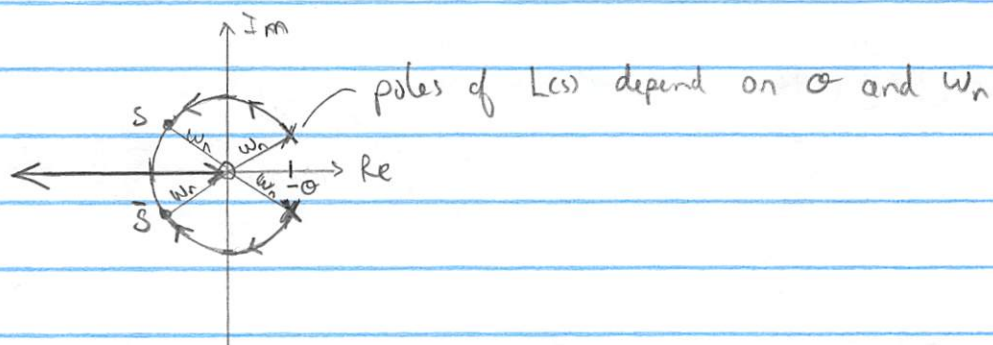 Im
poles of L(s) depend on σ and ωn
S
ωn
ωn
Re
ωn
ωn
-σ
S̄